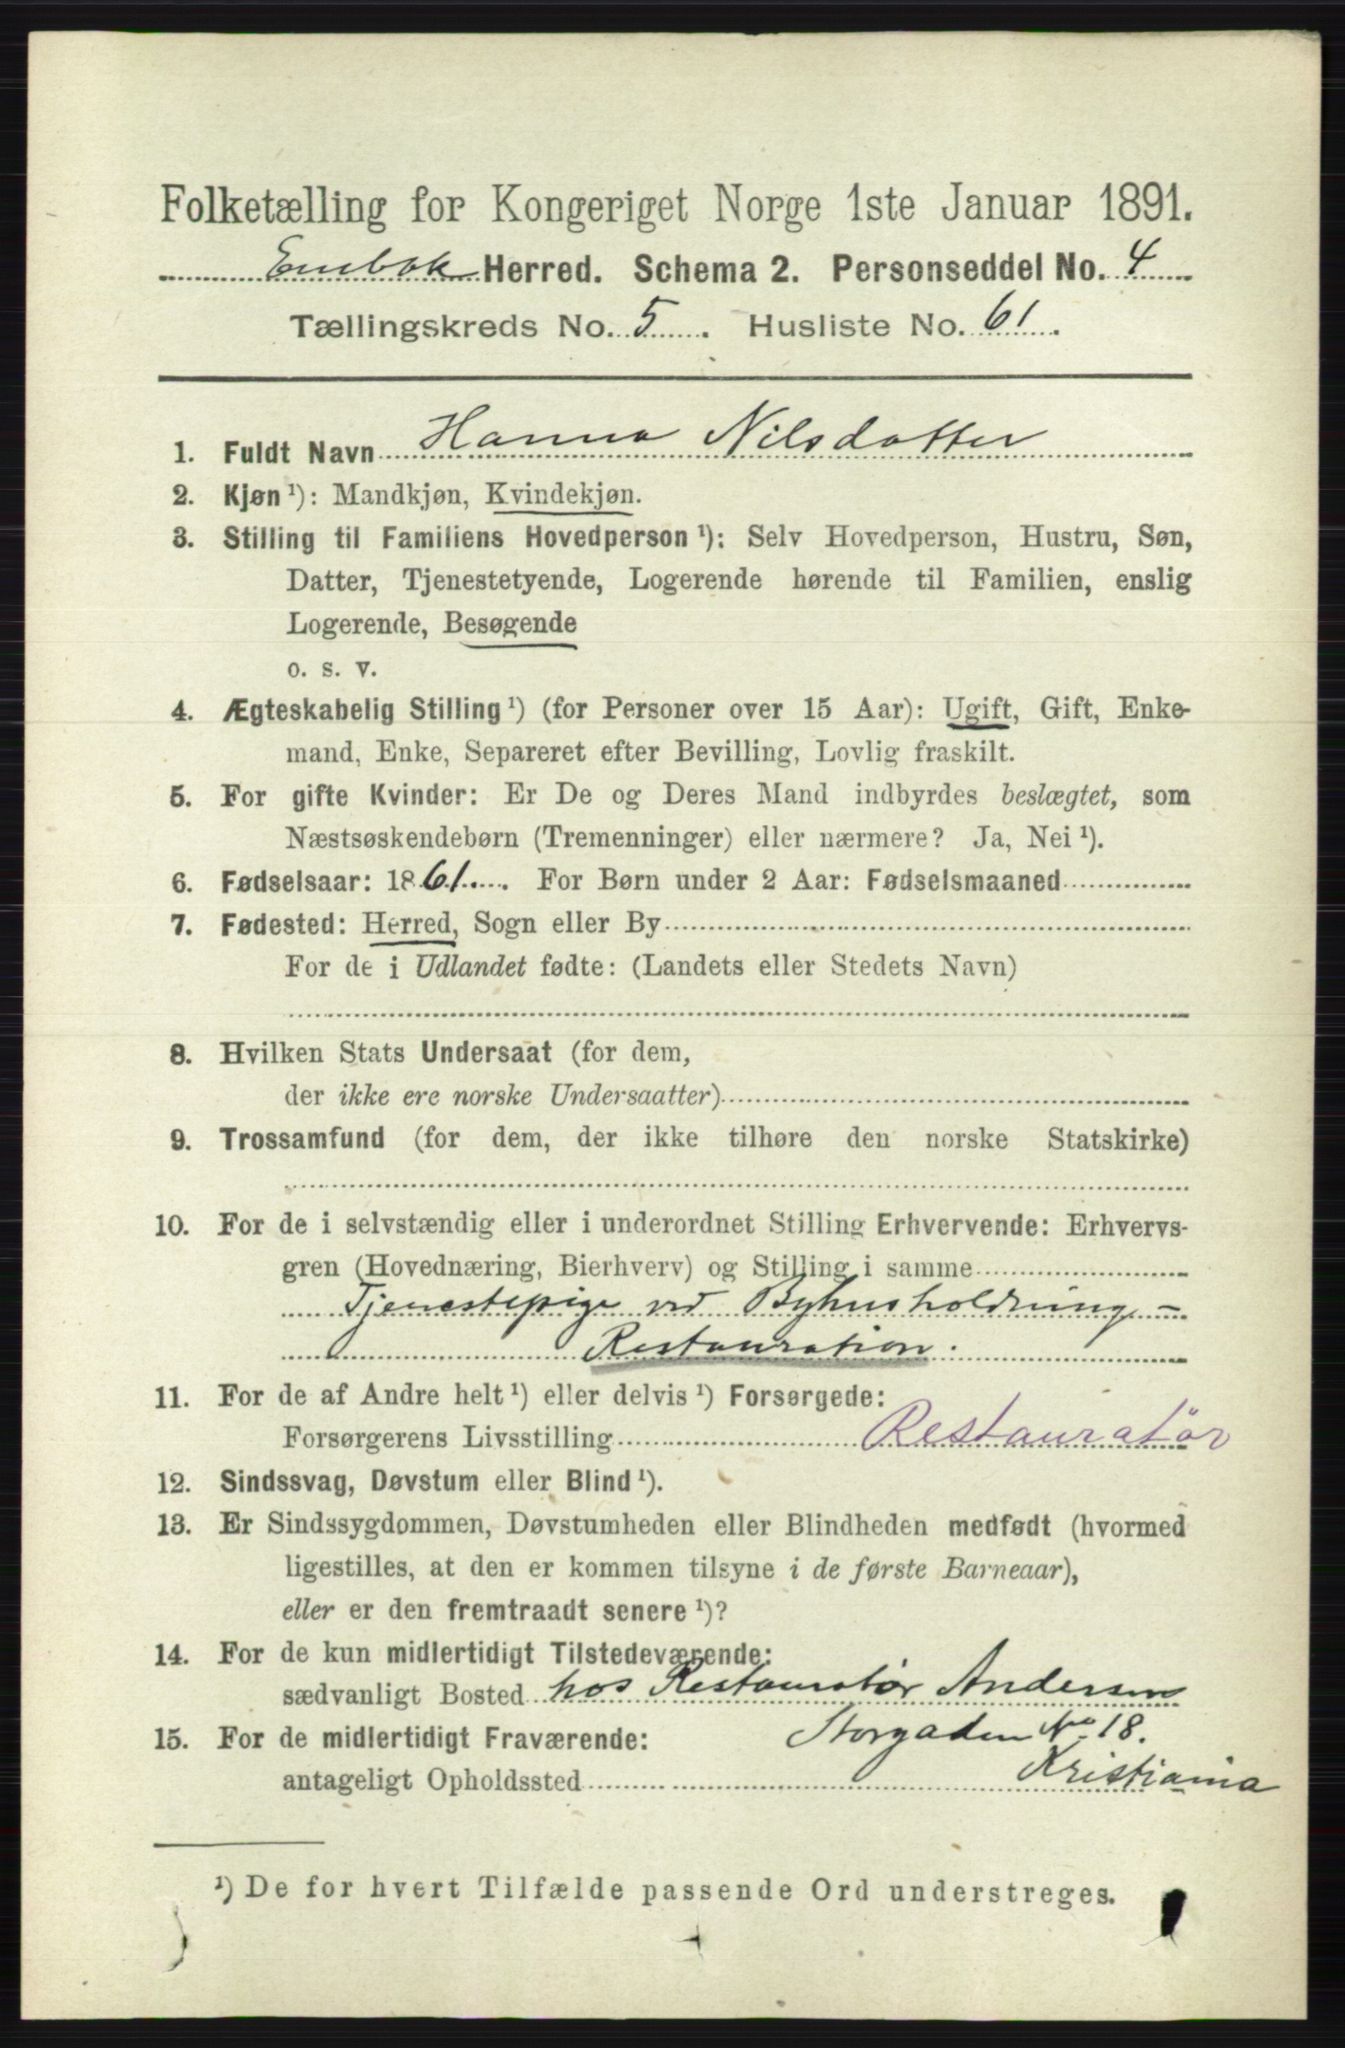 Folketælling for Kongeriget Norge 1ste Januar 1891.
Enebak Herred. Schema 2. Personseddel No. 4
Tællingskreds No. 5. Husliste No. 61.
1. Fuldt Navn Hanna Nilsdatter
2. Kjøn ¹): Mandkjøn, Kvindekjøn.
3. Stilling til Familiens Hovedperson ¹): Selv Hovedperson, Hustru, Søn,
Datter, Tjenestetyende, Logerende hørende til Familien, enslig
Logerende, Besøgende
o. s. v.
4. Ægteskabelig Stilling ¹) (for Personer over 15 Aar): Ugift, Gift, Enke-
mand, Enke, Separeret efter Bevilling, Lovlig fraskilt.
5. For gifte Kvinder: Er De og Deres Mand indbyrdes beslægtet, som
Næstsøskendebørn (Tremenninger) eller nærmere? Ja, Nei ¹).
6. Fødselsaar: 1861. For Børn under 2 Aar: Fødselsmaaned
7. Fødested: Herred, Sogn eller By
For de i Udlandet fødte: (Landets eller Stedets Navn)
8. Hvilken Stats Undersaat (for dem,
der ikke ere norske Undersaatter)
9. Trossamfund (for dem, der ikke tilhøre den norske Statskirke)
10. For de i selvstændig eller i underordnet Stilling Erhvervende: Erhvervs-
gren (Hovednæring, Bierhverv) og Stilling i samme
Tjenestepige ved Byhusholdning -
Restauration.
11. For de af Andre helt ¹) eller delvis ¹) Forsørgede:
Forsørgerens Livsstilling Restauratör
12. Sindssvag, Døvstum eller Blind ¹).
13. Er Sindssygdommen, Døvstumheden eller Blindheden medfødt (hvormed
ligestilles, at den er kommen tilsyne i de første Barneaar),
eller er den fremtraadt senere ¹)?
14. For de kun midlertidigt Tilstedeværende:
sædvanligt Bosted hos Restauratør Andersen
15. For de midlertidigt Fraværende: Storgaden No 18.
antageligt Opholdssted Kristiania
¹) De for hvert Tilfælde passende Ord understreges.